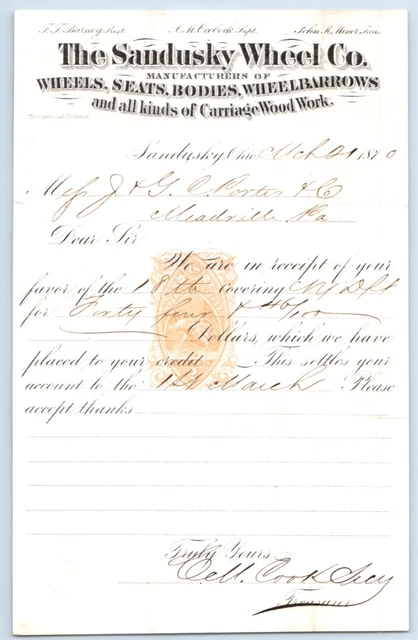 F. F. Barney Prest. A. M. Supt. John R. Miner Treas.
The Sandusky Wheel Co.
MANUFACTURERS OF
WHEELS, SEATS, BODIES, WHEELBARROWS
and all kinds of Carriage Wood Work.
Sandusky, Ohio, Mch 21 1870
Mess J & G Porter & C
Meadville Pa
Dear Sir
We are in receipt of your
favor of the 18th covering NY Dft
for Forty four & 46/100
Dollars, which we have
placed to your credit. This settles your
account to the 1st March. Please
accept thanks
Truly Yours,
Cook Secy
Treasurer